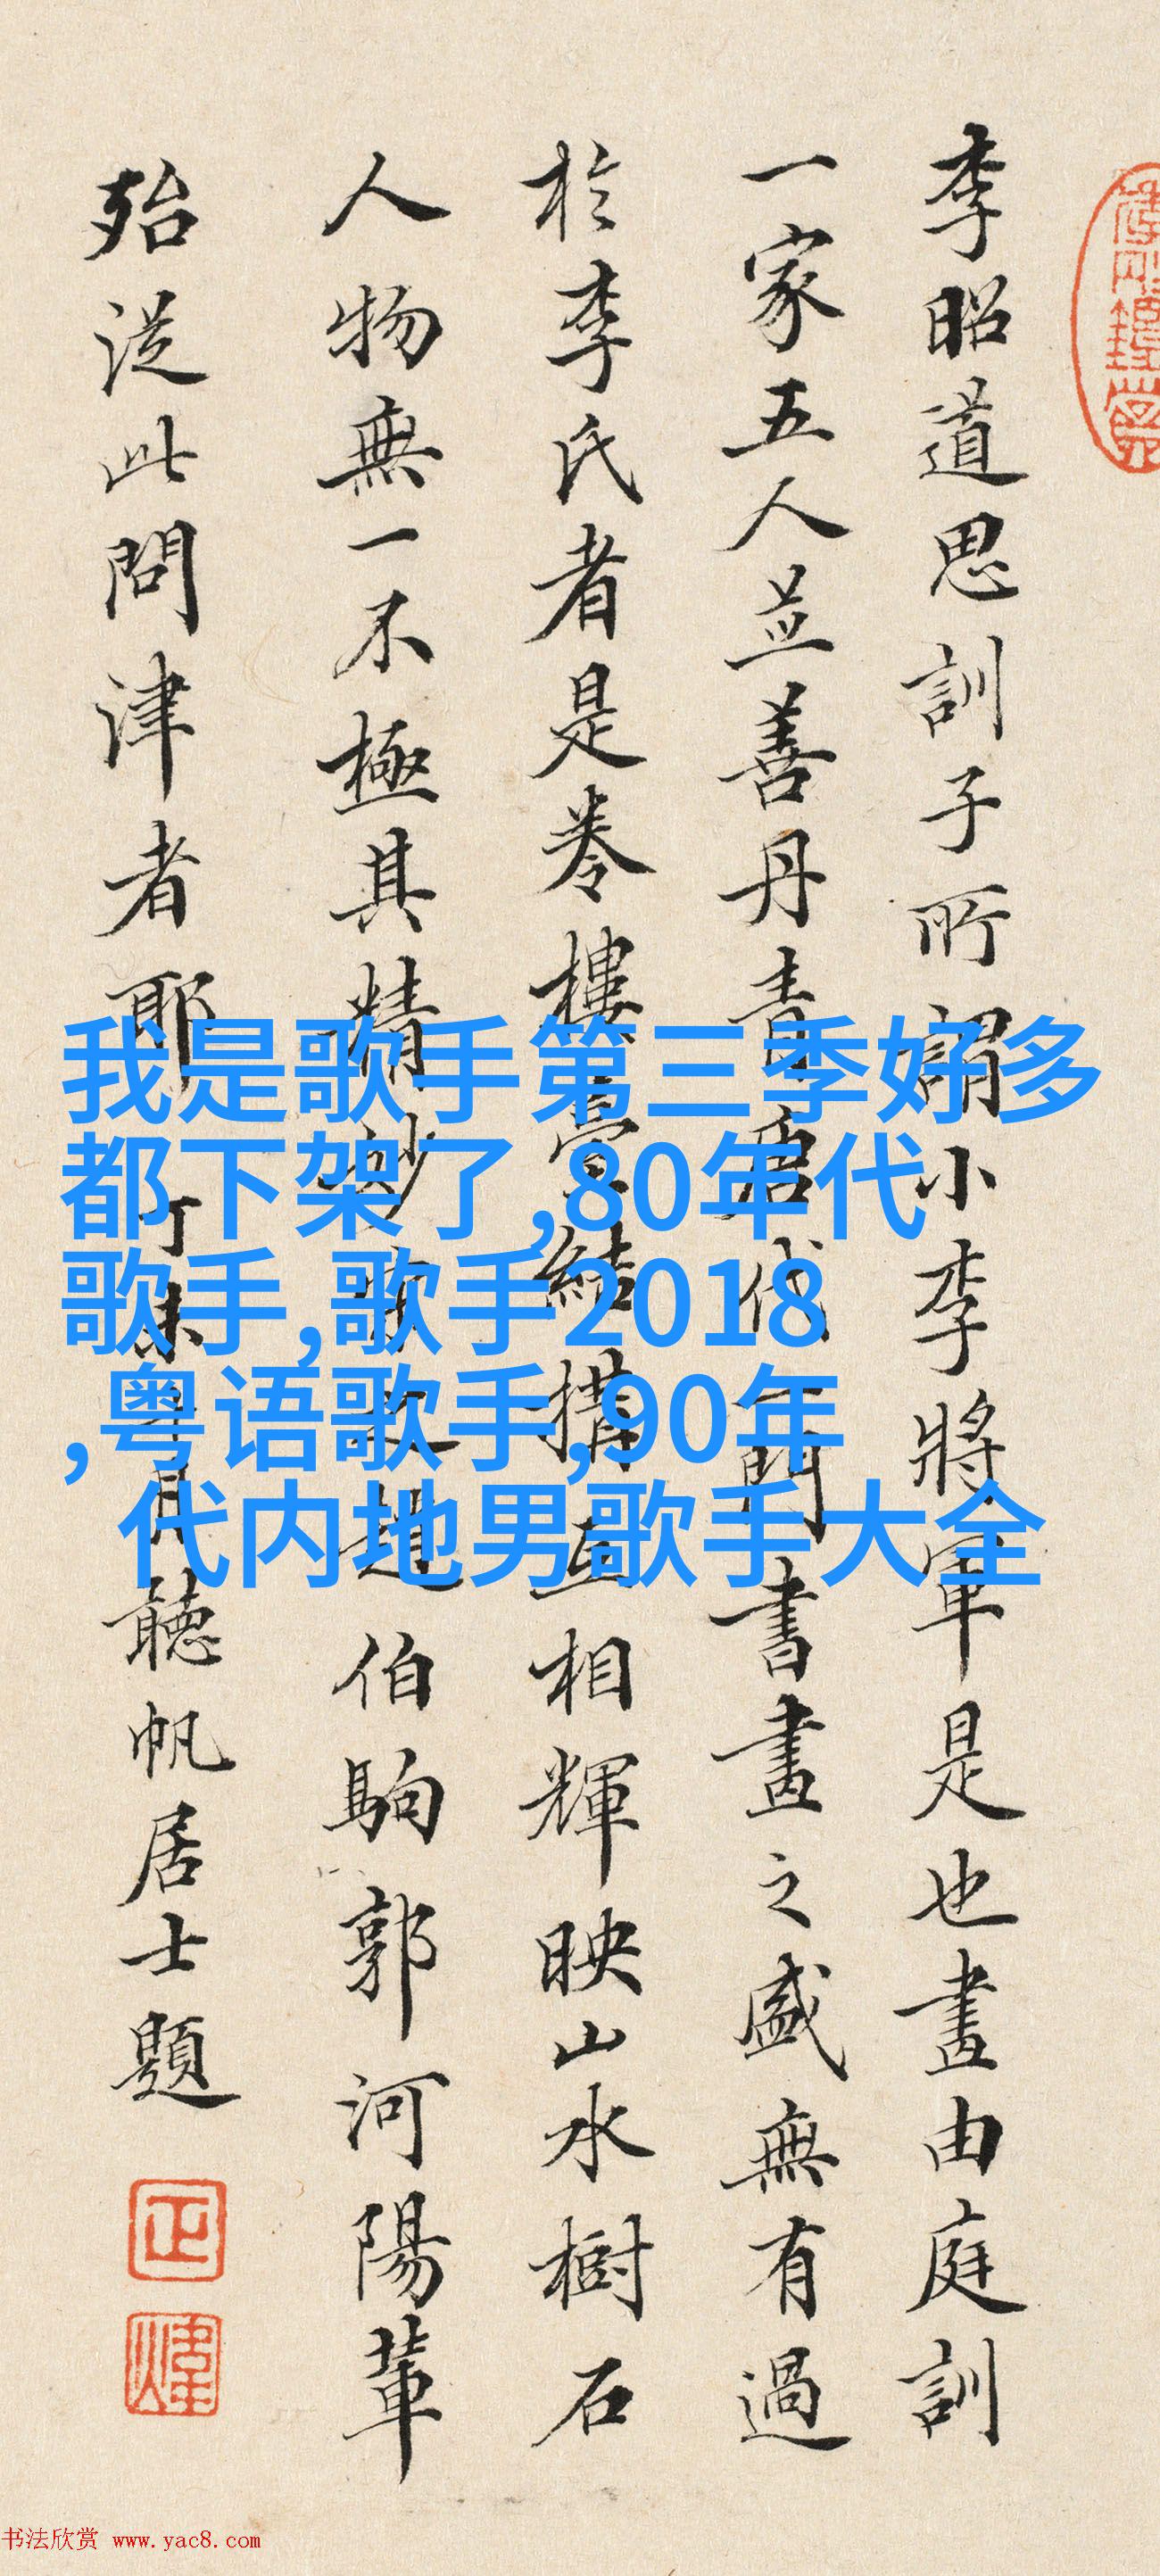 李昭道思訓子所謂小李將軍是也畫由庭訓
一家五人並善丹青唐代一門書畫之盛無有過
於李氏者是卷樓臺結構互相輝映山水樹石
人物無一不極其精妙宋之趙伯駒郭河陽輩
殆從此問津者耶丁未十月聽帆居士題
正
煒
我是歌手第三季好多
都下架了,80年代
歌手,歌手2018
,粤语歌手,90年
代内地男歌手大全
书法欣赏 www.yac8.com